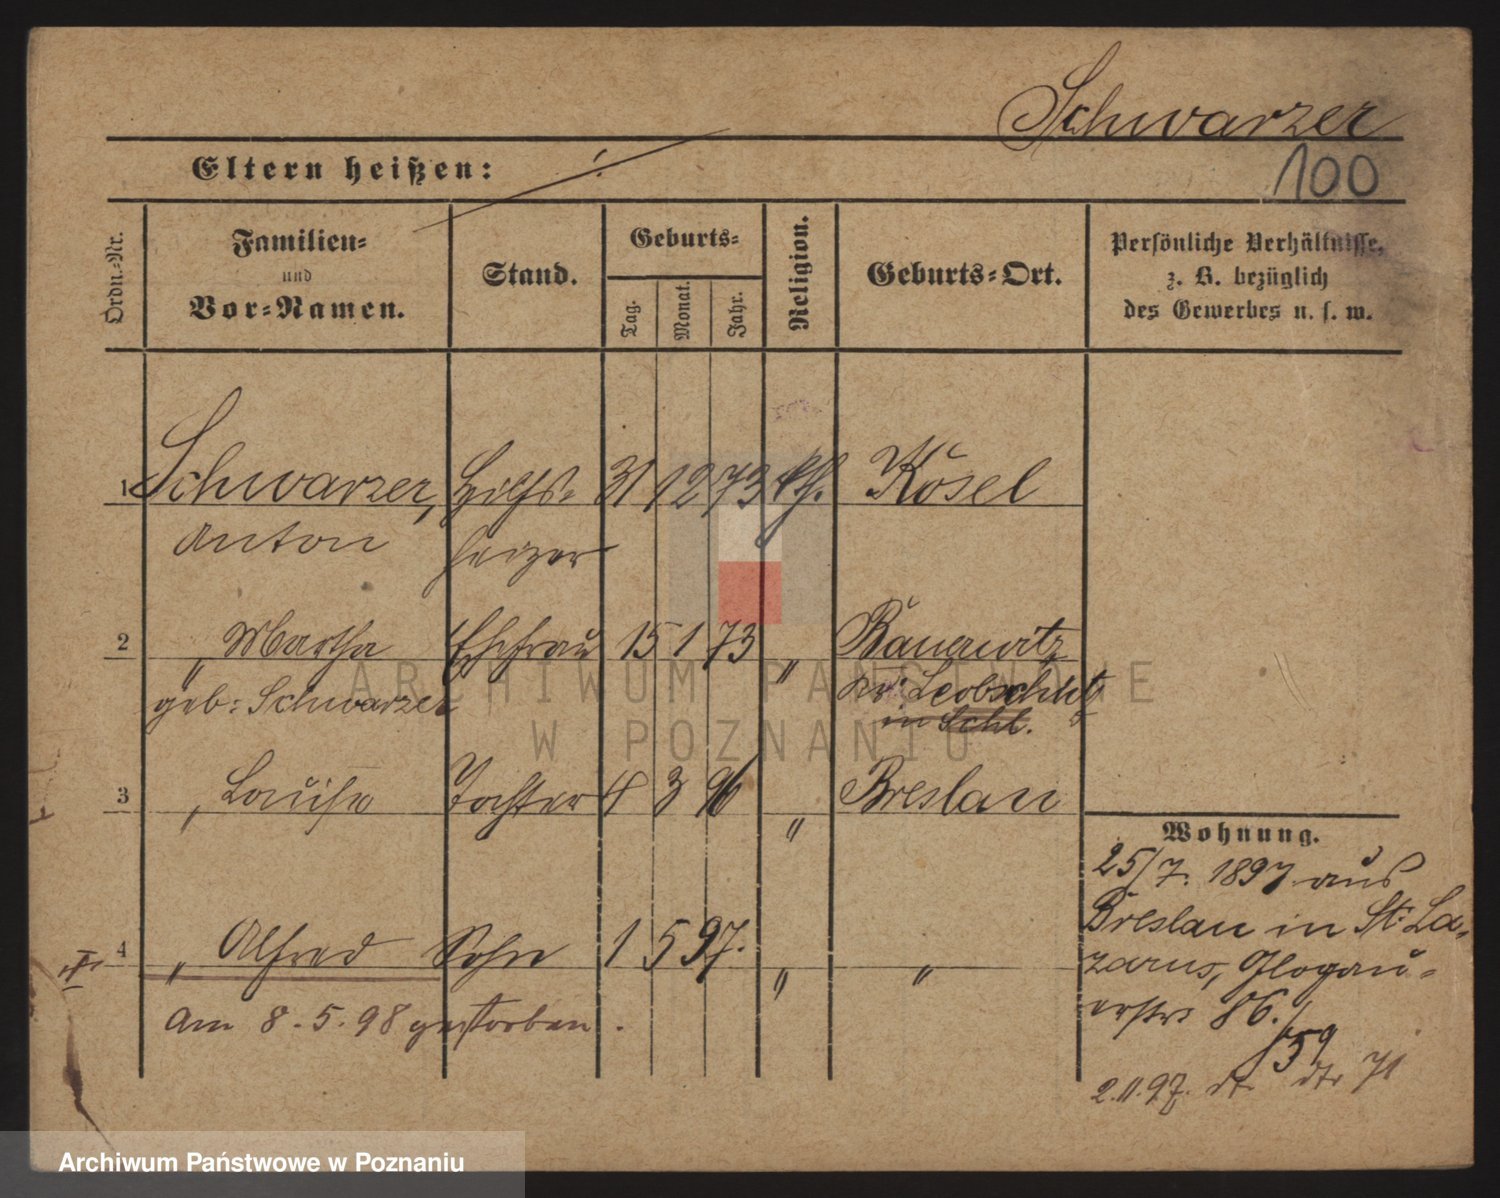 Schwarzer
Eltern heißen: ./.
100
Ordn.-Nr.
Familien-
und
Vor-Namen.
Stand.
Geburts-
Tag.
Monat.
Jahr.
Religion.
Geburts-Ort.
Persönliche Verhältnisse,
z. B. bezüglich
des Gewerbes u. s. w.
1 Schwarzer, Hilfs- 31 12 73 kth. Kosel
Anton heizer
2 " Martha Ehefrau 15 1 73 " Bauerwitz
geb: Schwarzer Kr: Leobschütz
in Schl.
3 " Louise Tochter 8 3 96 " Breslau
Wohnung.
25/7. 1897 aus
Breslau in St: La-
zarus, Glogau-
erstr 86.
4 " Alfred Sohn 1 5 97. " "
am 8.5.98 gestorben.
59
2.11.97. dt. dtr 71
ARCHIWUM PAŃSTWOWE
W POZNANIU
Archiwum Państwowe w Poznaniu